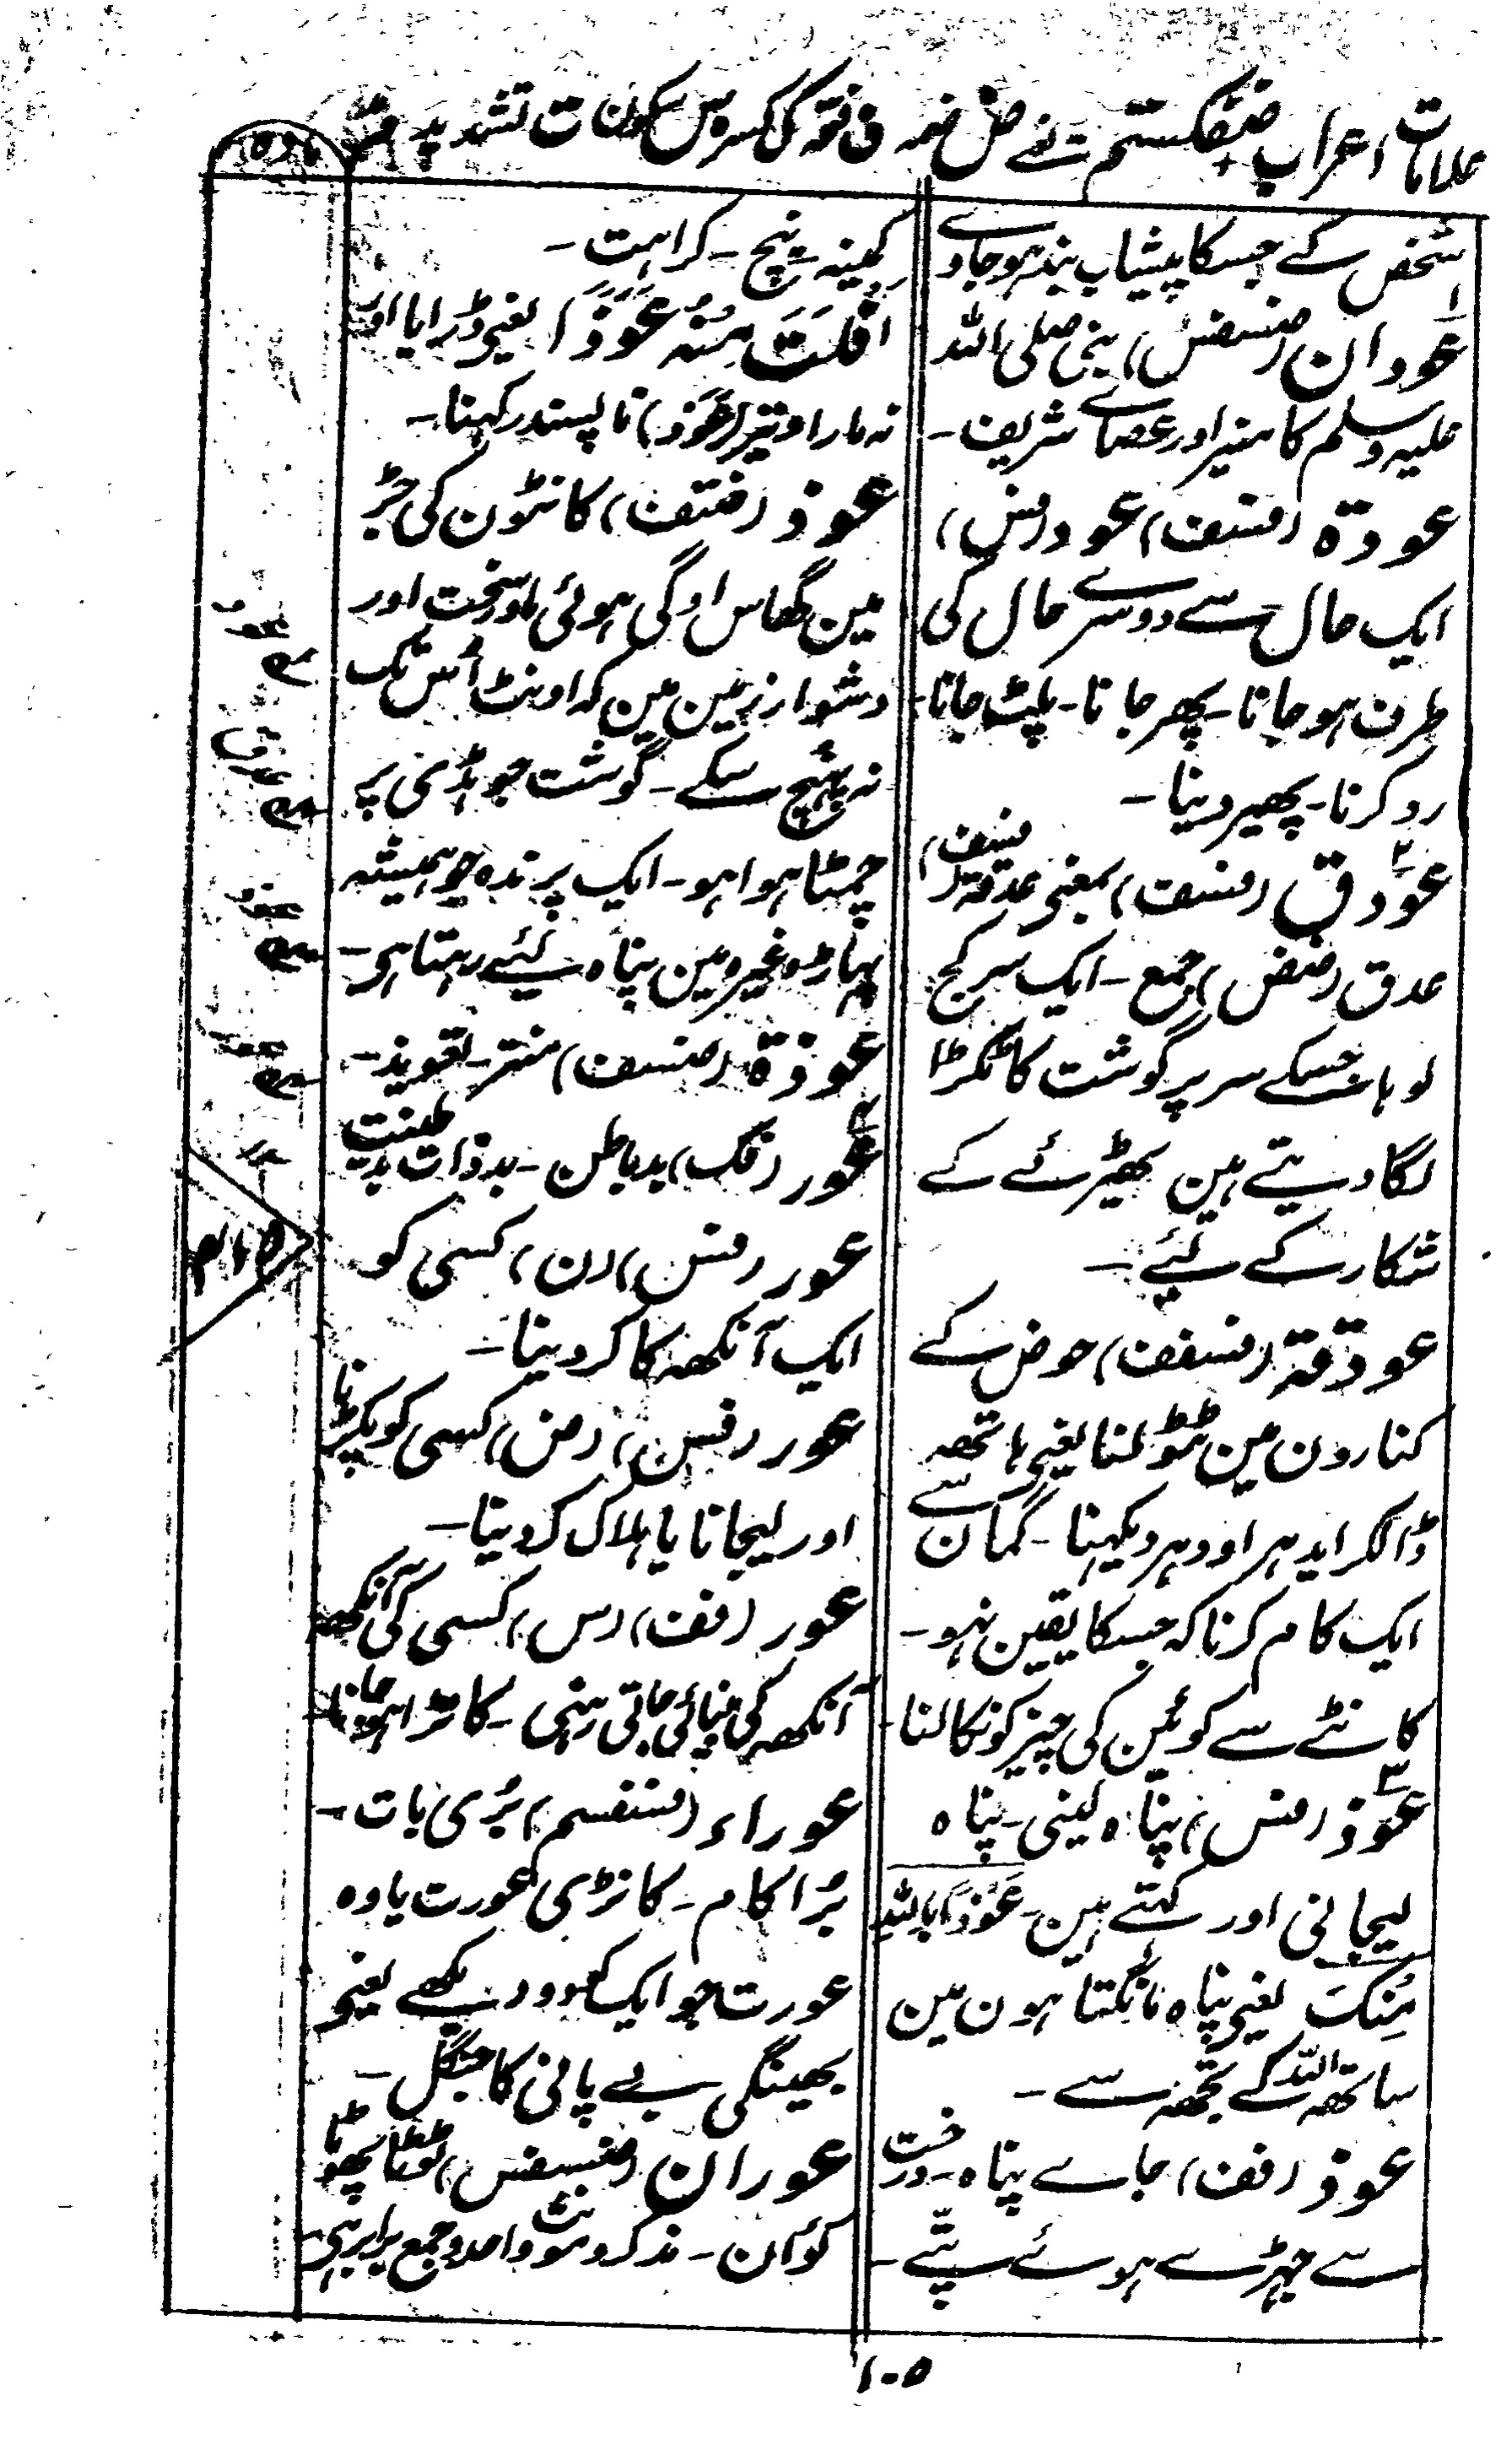 علامات اعراب ضفکستم ض ضمہ ف فتحہ ک کسرہ س سکون ت تشدید
مادہ
شخص کے جسکا پیشاب بند ہوجاوے
عودان (ضسفس) نبی صلی اللہ
علیہ وسلم کا منبر اور عصاے شریف۔
عودة (فسف) عود (فس)
ایک حال سے دوسرے حال کی
طرف ہوجانا۔ پھر جانا۔ پلٹ جانا۔
رد کرنا۔ پھیر دینا۔
عودق (فسف) بمعنی عدقة (فسف)
عدق (ضض) جمع۔ ایک سر کج
لوہا جسکے سر پر گوشت کا ٹکڑا
لگا دیتے ہین بھیڑئے کے
شکار کے لیئے۔
عودقة (فسفف) حوض کے
کنارون مین ٹٹولنا یعنی ہاتھہ
ڈالکر ایدہر اودہر دیکہنا۔ گمان سے
ایک کام کرنا کہ جسکا یقین نہو۔
کانٹے سے کوئین کی چیز کو نکالنا۔
عوذ (فس) پناہ لینی۔ پناہ
لیجانی اور کہتے ہین۔ عَوْذًا بِاللّٰہِ
مِنکَ یعنی پناہ مانگتا ہون مین
ساتھہ اللہ کے تجھہ سے۔
عوذ (فف) جاے پناہ۔ درخت
سے جہڑے ہوئے پتّے۔
کمینہ۔ نیچ۔ کراہت۔
اَفلَتَ مِنْہُ عَوَذًا یعنی ڈرایا اور
نہ مارا و نیز (عَوَذ) نا پسند رکہنا۔
عوذ (ضتف) کانٹون کی جڑ
مین گھاس اوگی ہوئی اور سخت اور
دشوار زمین مین کہ اونٹ اُس تک
نہ پہنچ سکے۔ گوشت جو ہڈی پر
چمٹا ہوا ہو۔ ایک پرندہ جو ہمیشہ
پہاڑ وغیرہ مین پناہ لیئے رہتا ہی۔
عوذة (ضسف) منتر۔ تعویذ۔
عور (فک) بد باطن۔ بد ذات بد طینت
عور (فس) (ن) کسی کو
ایک آنکھہ کا کر دینا۔
عور (فس) (ض) کسی کو پکڑنا
اور لیجانا یا ہلاک کر دینا۔
عور (فف) (س) کسی کی آنکھہ
آنکھہ کی بینائی جاتی رہنی۔ کانڑا ہوجانا
عوراء (فسفسم) بُری بات۔
بُرا کام۔ کانڑی عورت یا وہ
عورت جو ایک کو دو دیکھے یعنی
بھینگی بے پانی کا جنگل۔
عوران (ضسفس) ٹوٹا پھوٹا
کوٗان۔ مذکر و مونث واحد و جمع برابر ہی
۱۰۵